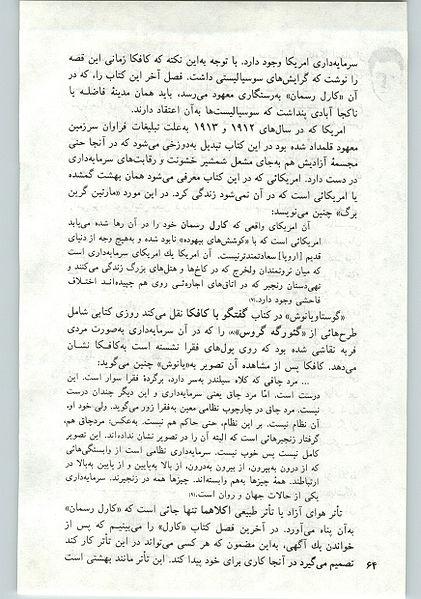 سرمایه‌داری امریکا وجود دارد. با توجه به‌این نکته که کافکا زمانی این قصه
را نوشت که گرایش‌های سوسیالیستی داشت. فصل آخر این کتاب را، که در
آن «کارل رسمان» به‌رستگاری معهود می‌رسد، باید همان مدینهٔ فاضله یا
ناکجا آبادی پنداشت که سوسیالیست‌ها به‌آن اعتقاد دارند.
امریکا که در سال‌های ۱۹۱۲ و ۱۹۱۳ به‌علت تبلیغات فراوان سرزمین
معهود قلمداد شده بود در این کتاب تبدیل به‌دوزخی می‌شود که در آنجا حتی
مجسمهٔ آزادیش هم به‌جای مشعل شمشیر خشونت و رقابت‌های سرمایه‌داری
در دست دارد. امریکائی که در این کتاب معرفی می‌شود همان بهشت گمشده
یا امریکائی است که در آن نمی‌شود زندگی کرد. در این مورد «مارتین گرین
برگ» چنین می‌نویسد:
آن امریکای واقعی که کارل رسمان خود را در آن رها شده می‌یابد
امریکائی است که با «کوشش‌های بیهوده» نابود شده و به‌هیچ وجه از دنیای
قدیم [اروپا] سعادتمندتر نیست. آن امریکا یك امریکای سرمایه‌داری است
که میان ثروتمندان ولخرج که در کاخ‌ها و هتل‌های بزرگ زندگی می‌کنند و
تهی‌دستان رنجبر که در اتاق‌های اجاره‌ئی روی هم چپیده‌اند اختلاف
فاحشی وجود دارد.(۷)
«گوستاویانوش» در کتاب گفتگو با کافکا نقل می‌کند روزی کتابی شامل
طرح‌هائی از «گئورگه گروس»(۸) را که در آن سرمایه‌داری به‌صورت مردی
فربه نقاشی شده بود که روی پول‌های فقرا نشسته است به‌کافکا نشان
می‌دهد. کافکا پس از مشاهده آن تصویر به«یانوش» چنین می‌گوید:
... مرد چاقی که کلاه سیلندر به‌سر دارد، برگردهٔ فقرا سوار است. این
درست است. امّا مرد چاق یعنی سرمایه‌داری و این دیگر چندان درست
نیست. مرد چاق در چارچوب نظامی معین به‌فقرا زور می‌گوید. ولی خود او،
آن نظام نیست. بر این نظام، حتی حاکم هم نیست. به‌عکس: مردچاق هم،
گرفتار زنجیرهائی است که البته آن را در تصویر نشان نداده‌اند. این تصویر
کامل نیست پس خوب نیست. سرمایه‌داری نظامی است از وابستگی‌هائی
که از درون به‌بیرون، از بیرون به‌درون، از بالا به‌پایین و از پایین به‌بالا در
ارتباطند. همهٔ چیزها به‌هم وابسته‌اند. چیزها همه در زنجیرند. سرمایه‌داری
یکی از حالات جهان و روان است.(۹)
تأتر هوای آزاد یا تأتر طبیعی اکلاهما تنها جائی است که «کارل رسمان»
به‌آن پناه می‌آورد. در آخرین فصل کتاب «کارل» را می‌بینیم که پس از
خواندن یك آگهی، به‌این مضمون که هر کسی می‌تواند در این تأتر کار کند
تصمیم می‌گیرد در آنجا کاری برای خود پیدا کند. این تأتر مانند بهشتی است
۶۴